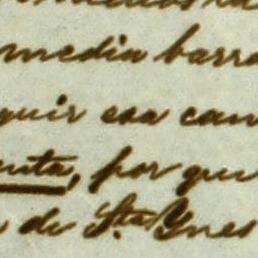 media barra
guir esa can
enta, por que
de Sta Ynes